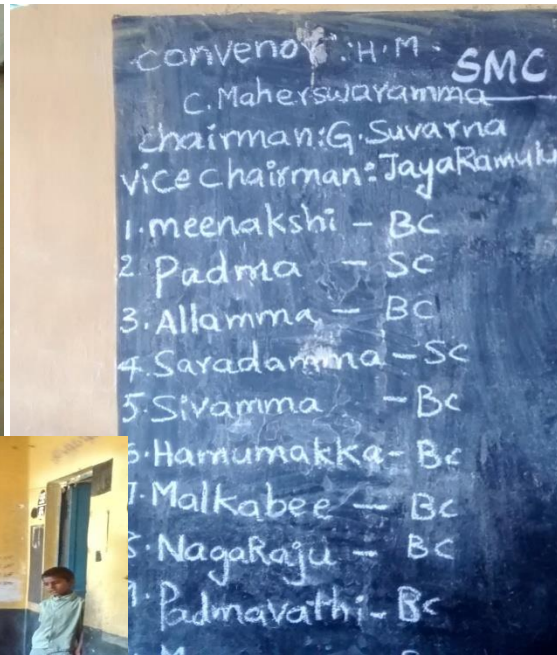 Convenor : H.M. SMC
C. Maherswaramma
Chairman: G. Suvarna
Vice Chairman: JayaRamulu
1. meenakshi - BC
2. Padma - SC
3. Allamma - BC
4. Saradamma - SC
5. Sivamma - BC
6. Hamumakka - BC
7. Malkabee - BC
8. NagaRaju - BC
9. Padmavathi - BC